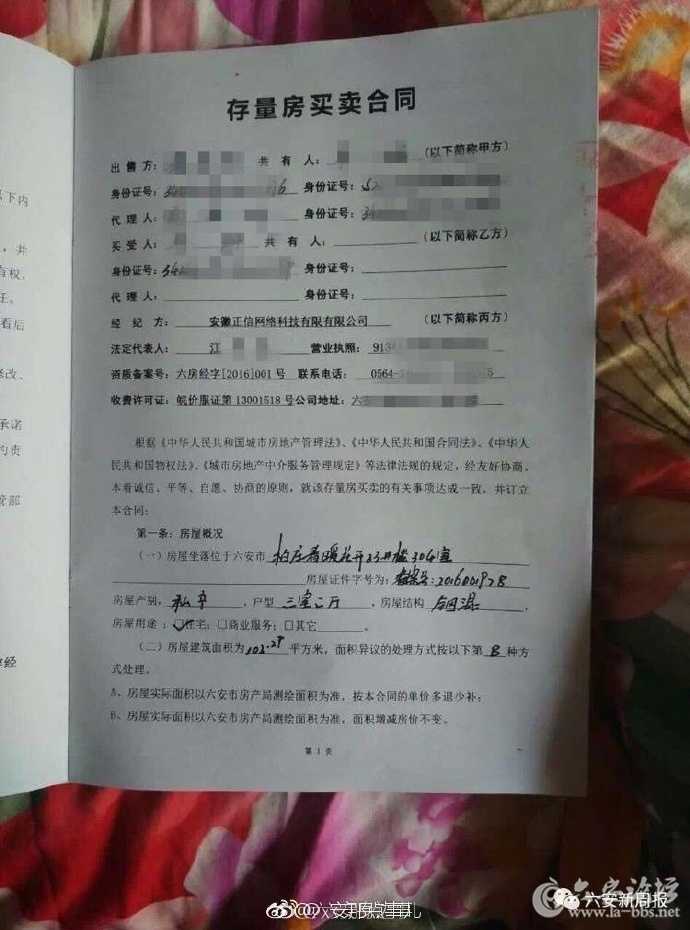 下内
，并
有权,
王。
看后
修改、
承诺
约责
管部
存量房买卖合同
出售方： 共有人： (以下简称甲方)
身份证号： 身份证号：
代理人： 身份证号：
买受人： 共有人： (以下简称乙方)
身份证号：34 身份证号：
代理人： 身份证号：
经纪方： 安徽正信网络科技有限有限公司 (以下简称丙方)
法定代表人： 江 营业执照： 913
资质备案号：六房经字[2016]001号 联系电话： 0564-
收费许可证：皖价服证第13001518号公司地址：六
根据《中华人民共和国城市房地产管理法》、《中华人民共和国合同法》、《中华人
民共和国物权法》、《城市房地产中介服务管理规定》等法律法规的规定，经友好协商，
本着诚信、平等、自愿、协商的原则，就该存量房买卖的有关事项达成一致，并订立
本合同：
第一条：房屋概况
(一) 房屋坐落位于六安市 柏庄春暖花开 306室
房屋证件字号为：
房屋产别， 私产 ，户型 三室二厅 ，房屋结构
房屋用途：☑住宅；□商业服务；□其它 。
(二) 房屋建筑面积为102.28平方米，面积异议的处理方式按以下第 B 种方
式处理。
A、房屋实际面积以六安市房产局测绘面积为准，按本合同的单价多退少补；
B、房屋实际面积以六安市房产局测绘面积为准，面积增减房价不变。
第 1 页
六安新周报
www.la-bbs.net